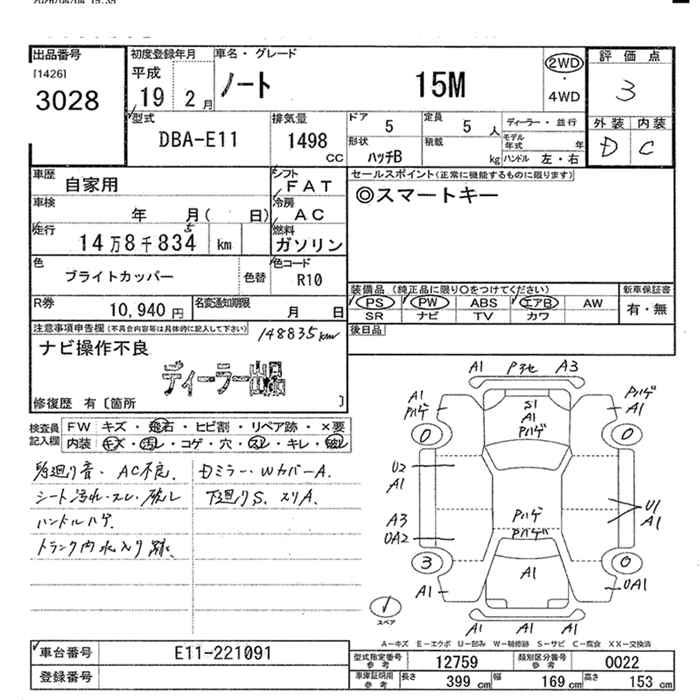 出品番号
[1426]
3028
初度登録年月
平成
19 2 月
車名・グレード
ノート 15M
2WD
・
4WD
評価点
3
外装 内装
D C
型式
DBA-E11
排気量
1498
CC
ドア
5
定員
5 人
形状
ハッチB
積載
kg
ディーラー・並行
モデル年式 年
ハンドル 左・右
車歴
自家用
シフト
FAT
車検
年 月( 日)
冷房
AC
走行
14万8千834 km
5
燃料
ガソリン
色
ブライトカッパー
色替
色コード
R10
R券
10,940 円
名変通知期限
月 日
セールスポイント(正常に機能するものに限ります)
◎スマートキー
装備品 (純正品に限り○をつけてください)
PS PW ABS エアB AW
SR ナビ TV カワ
新車保証書
有・無
後日品
注意事項申告欄(不具合内容等は具体的に記入して下さい)
148835km
ナビ操作不良
ディーラー出品
修復歴 有〔箇所 〕
検査員
記入欄
FW キズ・飛石・ヒビ割・リペア跡・×要
内装 キズ・汚レ・コゲ・穴・スレ・キレ・破レ
AC不良.
シート汚れ・スレ・破レ
ハンドルハゲ.
トランク内水入り跡.
Dミラー・WカバーA.
下廻りS、スリA.
A1 A3
A1
Pハゲ
S1
A1
Pハゲ
Pハゲ
A1
0 0
U2
A1
A3
UA2
U1
A1
Pハゲ
Pハゲ
3 0
A1
A1
UA1
A1 A1 A1
スペア
A-キズ E-エクボ U-凹み W-補修跡 S-サビ C-腐食 XX-交換済
車台番号
E11-221091
登録番号
型式指定番号
参考
12759
類別区分番号
参考
0022
車庫証明用
参考
長さ 399 cm 幅 169 cm 高さ 153 cm